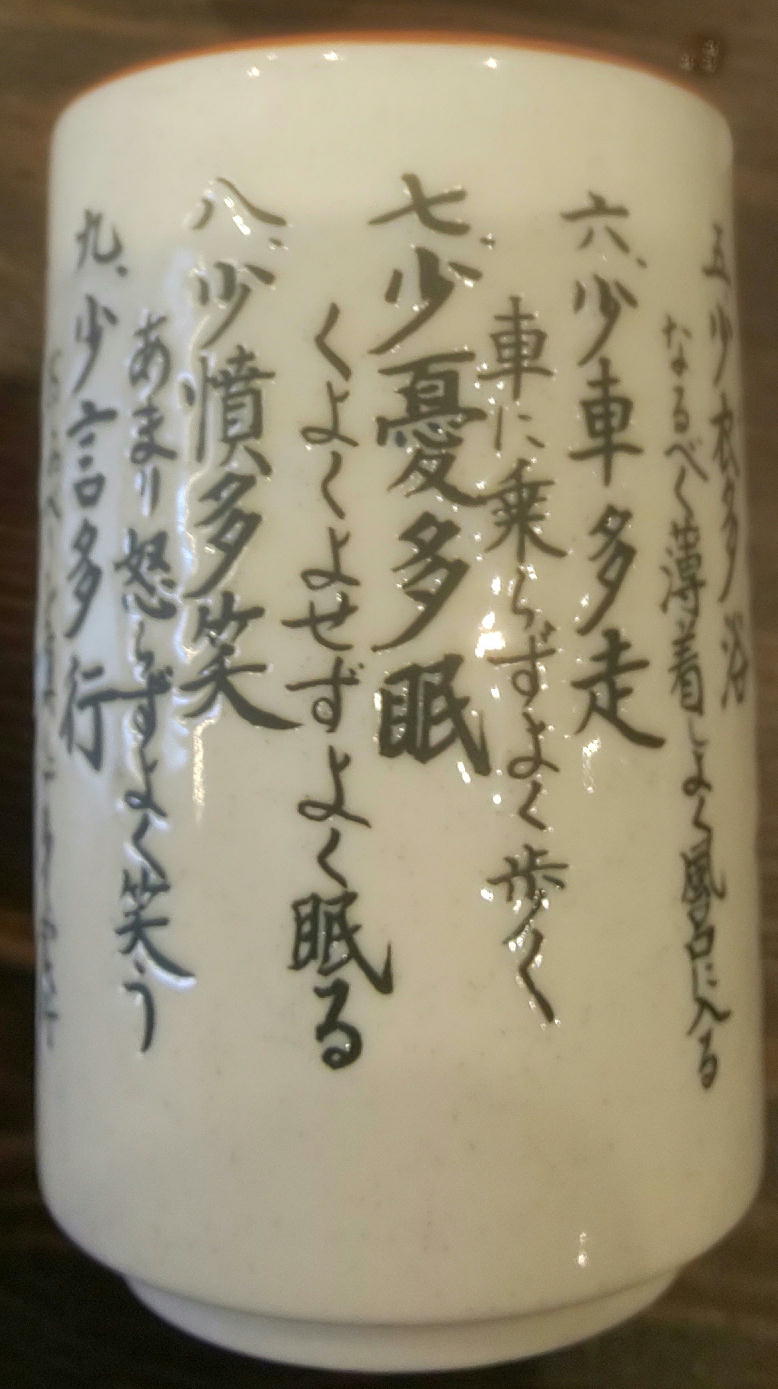 五、少衣多浴
なるべく薄着しよく風呂に入る
六、少車多走
車に乗らずよく歩く
七、少憂多眠
くよくよせずよく眠る
八、少憤多笑
あまり怒らずよく笑う
九、少言多行